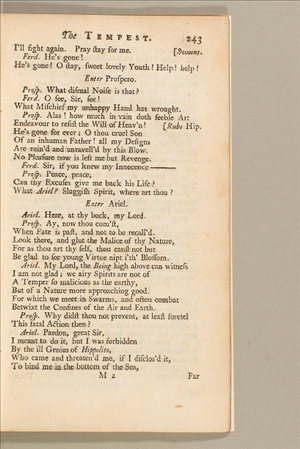 The TEMPEST. 243
I'll fight again. Pray ſtay for me. [Swoons.
Ferd. He's gone!
He's gone! O ſtay, ſweet lovely Youth! Help! help!
Enter Proſpero.
Proſp. What diſmal Noiſe is that?
Ferd. O ſee, Sir, ſee!
What Miſchief my unhappy Hand has wrought.
Proſp. Alas! how much in vain doth feeble Art
Endeavour to reſiſt the Will of Heav'n! [Rubs Hip.
He's gone for ever; O thou cruel Son
Of an inhuman Father! all my Deſigns
Are ruin'd and unravell'd by this Blow.
No Pleaſure now is left me but Revenge.
Ferd. Sir, if you knew my Innocence——
Proſp. Peace, peace,
Can thy Excuſes give me back his Life?
What Ariel? Sluggiſh Spirit, where art thou?
Enter Ariel.
Ariel. Here, at thy beck, my Lord.
Proſp. Ay, now thou com'ſt,
When Fate is paſt, and not to be recall'd.
Look there, and glut the Malice of thy Nature,
For as thou art thy ſelf, thou canſt not but
Be glad to ſee young Virtue nipt i'th' Bloſſom.
Ariel. My Lord, the Being high above can witneſs
I am not glad; we airy Spirits are not of
A Temper ſo malicious as the earthy,
But of a Nature more approaching good.
For which we meet in Swarms, and often combat
Betwixt the Confines of the Air and Earth.
Proſp. Why didſt thou not prevent, at leaſt foretel
This fatal Action then?
Ariel. Pardon, great Sir,
I meant to do it, but I was forbidden
By the ill Genius of Hippolito,
Who came and threaten'd me, if I diſclos'd it,
To bind me in the bottom of the Sea,
M 2 Far